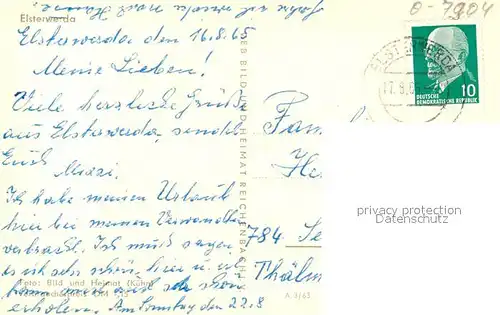 fahre ich wieder nach Hause
O-7904
Elsterwerda
Elsterwerda den 16.8.65
Meine Lieben!
Viele herzliche Grüße
aus Elsterwerda, sendet
Euch
Ich habe meinen Urlaub
hier bei meinen Verwandten
verbracht. Ich muß sagen,
es ist sehr schön, hier u. ich
kann mich auch sehr schön
erholen. Am Sonntag den 22.8
Foto: Bild und Heimat (Kühn)
VEB BILD UND HEIMAT REICHENBACH i. V.
A 3/65
17.8.65
DEUTSCHE
DEMOKRATISCHE REPUBLIK
10
Fam
He
784. Se
Thälm
privacy protection
Datenschutz